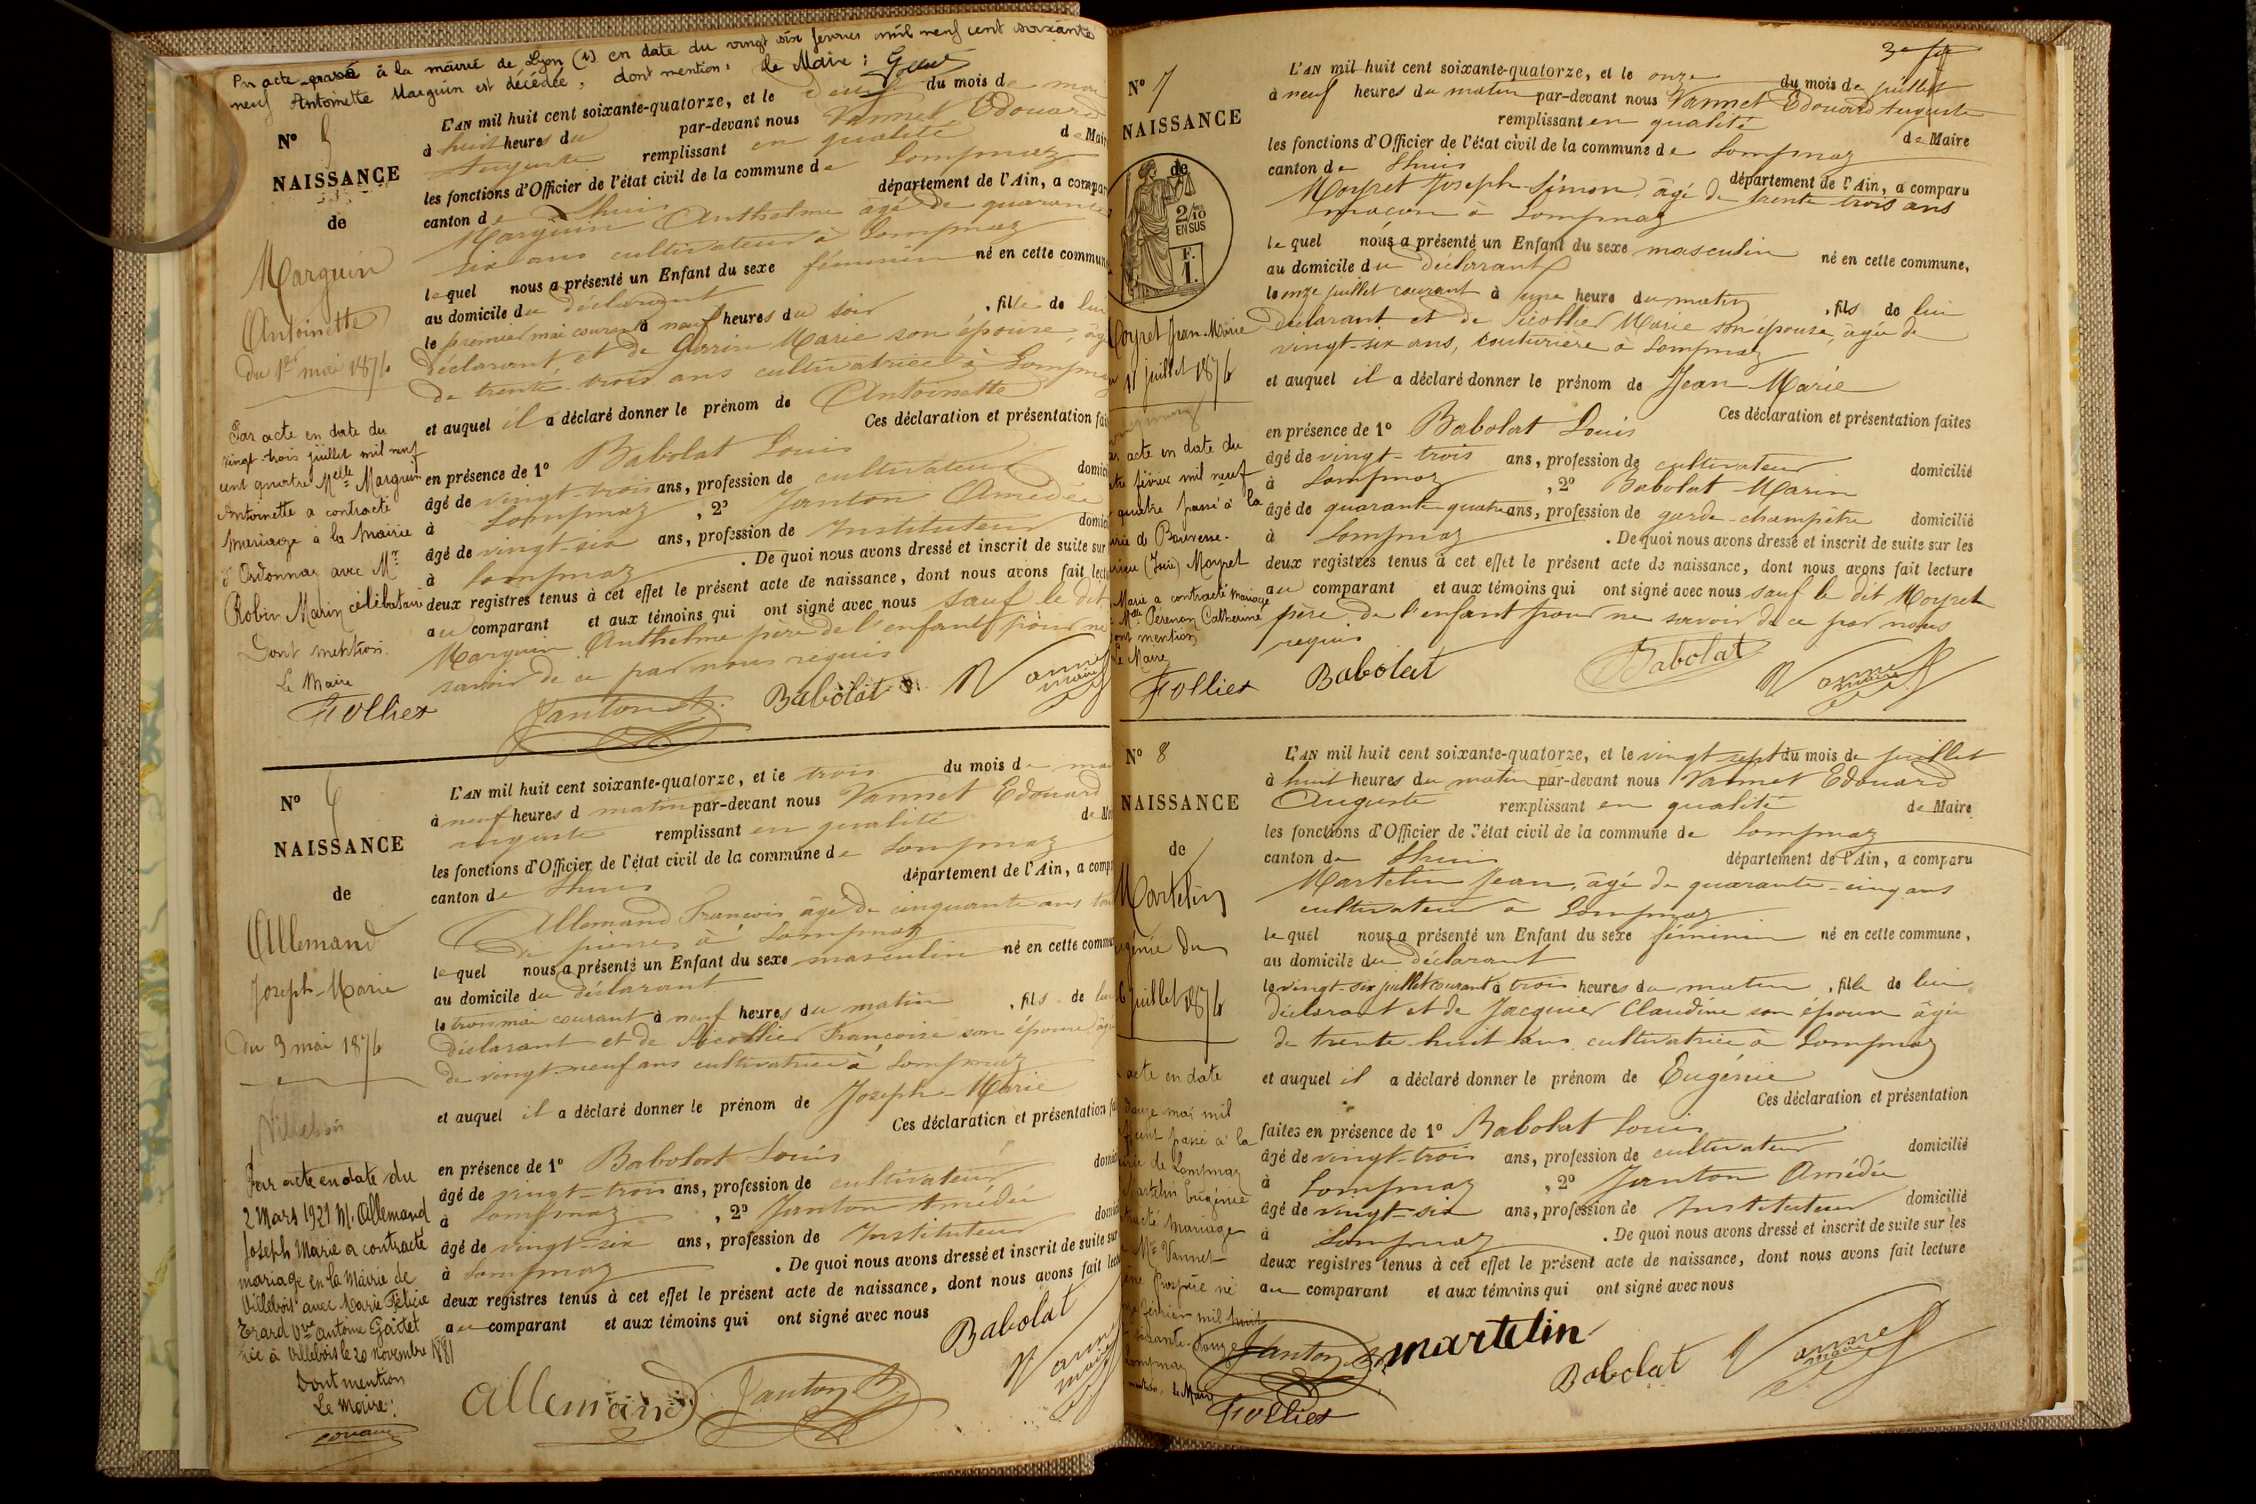 Par acte passé à la mairie de Lyon (1) en date du vingt six février mil neuf cent soixante
neuf Antoinette Marguin est décédée, dont mention, le Maire :
N° 5
NAISSANCE
de
Marguin
Antoinette
du 1er mai 1874
Par acte en date du
vingt-trois juillet mil neuf
cent quatre Melle Marguin
Antoinette a contracté
mariage à la Mairie
d'Ordonnaz avec Mr
Robin Marin célibataire
Dont mention.
Le Maire
Follier
L'AN mil huit cent soixante-quatorze, et le deux du mois de mai
à huit heures du par-devant nous Vannet Edouard
Auguste remplissant en qualité de Maire
les fonctions d'Officier de l'état civil de la commune de Lompnaz
canton de Lhuis département de l'Ain, a comparu
Marguin Anthelme âgé de quarante
six ans cultivateur à Lompnaz
lequel nous a présenté un Enfant du sexe féminin né en cette commune
au domicile du déclarant
le premier mai courant à neuf heures du soir , fille de lui
déclarant, et de Guerrin Marie son épouse, âgée
de trente-trois ans cultivatrice à Lompnaz
et auquel il a déclaré donner le prénom de Antoinette
Ces déclaration et présentation fai
en présence de 1° Babolat Louis
âgé de vingt-trois ans, profession de cultivateur domici
à Lompnaz , 2° Janton Amédée
âgé de vingt-six ans, profession de Instituteur domici
à Lompnaz . De quoi nous avons dressé et inscrit de suite sur
deux registres tenus à cet effet le présent acte de naissance, dont nous avons fait lectu
au comparant et aux témoins qui ont signé avec nous sauf le dit
Marguin Anthelme père de l'enfant pour ne
savoir de ce par nous requis
Janton A. Babolat Vannet
maire
N° 6
NAISSANCE
de
Allemand
Joseph-Marie
du 3 mai 1874
Villebois
Par acte en date du
2 Mars 1921 M. Allemand
Joseph Marie a contracté
mariage en la Mairie de
Villebois avec Marie Félicie
Erard Vve Antoine Gaitet
née à Villebois le 20 novembre 1881
Dont mention
Le Maire :
L'AN mil huit cent soixante-quatorze, et le trois du mois de mai
à neuf heures d matin par-devant nous Vannet Edouard
Auguste remplissant en qualité de Mai
les fonctions d'Officier de l'état civil de la commune de Lompnaz
canton de Lhuis département de l'Ain, a compa
Allemand François âgé de cinquante ans
de pierres à Lompnaz
lequel nous a présenté un Enfant du sexe masculin né en cette commu
au domicile du déclarant
le trois mai courant à neuf heures du matin , fils de lui
déclarant et de Sicollier Françoise son épouse âgée
de vingt-neuf ans cultivatrice à Lompnaz
et auquel il a déclaré donner le prénom de Joseph-Marie
Ces déclaration et présentation fa
en présence de 1° Babolat Louis
âgé de vingt-trois ans, profession de cultivateur domici
à Lompnaz , 2° Janton Amédée
âgé de vingt-six ans, profession de Instituteur domici
à Lompnaz . De quoi nous avons dressé et inscrit de suite sur
deux registres tenus à cet effet le présent acte de naissance, dont nous avons fait lectu
au comparant et aux témoins qui ont signé avec nous
Babolat
Allemand Janton A. Vannet
maire
N° 7
NAISSANCE
de
2/10
EN SUS
F.
1.
Moyret Jean-Marie
11 juillet 1874
acte en date du
février mil neuf
quatre passé à la
Moyret
Marie a contracté mariage
Melle Pérenon Catherine
dont mention
Le Maire
Follier
L'AN mil huit cent soixante-quatorze, et le onze du mois de juillet
à neuf heures du matin par-devant nous Vannet Edouard Auguste
remplissant en qualité de Maire
les fonctions d'Officier de l'état civil de la commune de Lompnaz
canton de Lhuis département de l'Ain, a comparu
Moyret Joseph-Simon, âgé de trente-trois ans
maçon à Lompnaz
lequel nous a présenté un Enfant du sexe masculin né en cette commune,
au domicile du déclarant
le onze juillet courant à une heure du matin , fils de lui
déclarant et de Sicollier Marie son épouse, âgée de
vingt-six ans, couturière à Lompnaz
et auquel il a déclaré donner le prénom de Jean-Marie
Ces déclaration et présentation faites
en présence de 1° Babolat Louis
âgé de vingt-trois ans, profession de cultivateur domicilié
à Lompnaz , 2° Babolat Marin
âgé de quarante-quatre ans, profession de garde-champêtre domicilié
à Lompnaz . De quoi nous avons dressé et inscrit de suite sur les
deux registres tenus à cet effet le présent acte de naissance, dont nous avons fait lecture
au comparant et aux témoins qui ont signé avec nous sauf le dit Moyret
père de l'enfant pour ne savoir de ce par nous
requis
Babolat Babolat Vannet
maire
N° 8
NAISSANCE
de
Martelin
Eugénie du
26 juillet 1874
acte en date
douze mai mil
passé à la
mairie de Lompnaz
Martelin Eugénie
contracté mariage
Mr Vannet
Prosper né
février mil huit
soixante-douze
Lompnaz
mention, le Maire
Follier
L'AN mil huit cent soixante-quatorze, et le vingt-sept du mois de juillet
à huit heures du matin par-devant nous Vannet Edouard
Auguste remplissant en qualité de Maire
les fonctions d'Officier de l'état civil de la commune de Lompnaz
canton de Lhuis département de l'Ain, a comparu
Martelin Jean, âgé de quarante-cinq ans
cultivateur à Lompnaz
lequel nous a présenté un Enfant du sexe féminin né en cette commune,
au domicile du déclarant
le vingt-six juillet courant à trois heures du matin , fille de lui
déclarant et de Jacquier Claudine son épouse âgée
de trente-huit ans cultivatrice à Lompnaz
et auquel il a déclaré donner le prénom de Eugénie
Ces déclaration et présentation
faites en présence de 1° Babolat Louis
âgé de vingt-trois ans, profession de cultivateur domicilié
à Lompnaz , 2° Janton Amédée
âgé de vingt-six ans, profession de Instituteur domicilié
à Lompnaz . De quoi nous avons dressé et inscrit de suite sur les
deux registres tenus à cet effet le présent acte de naissance, dont nous avons fait lecture
au comparant et aux témoins qui ont signé avec nous
Janton A. martelin Babolat Vannet
maire